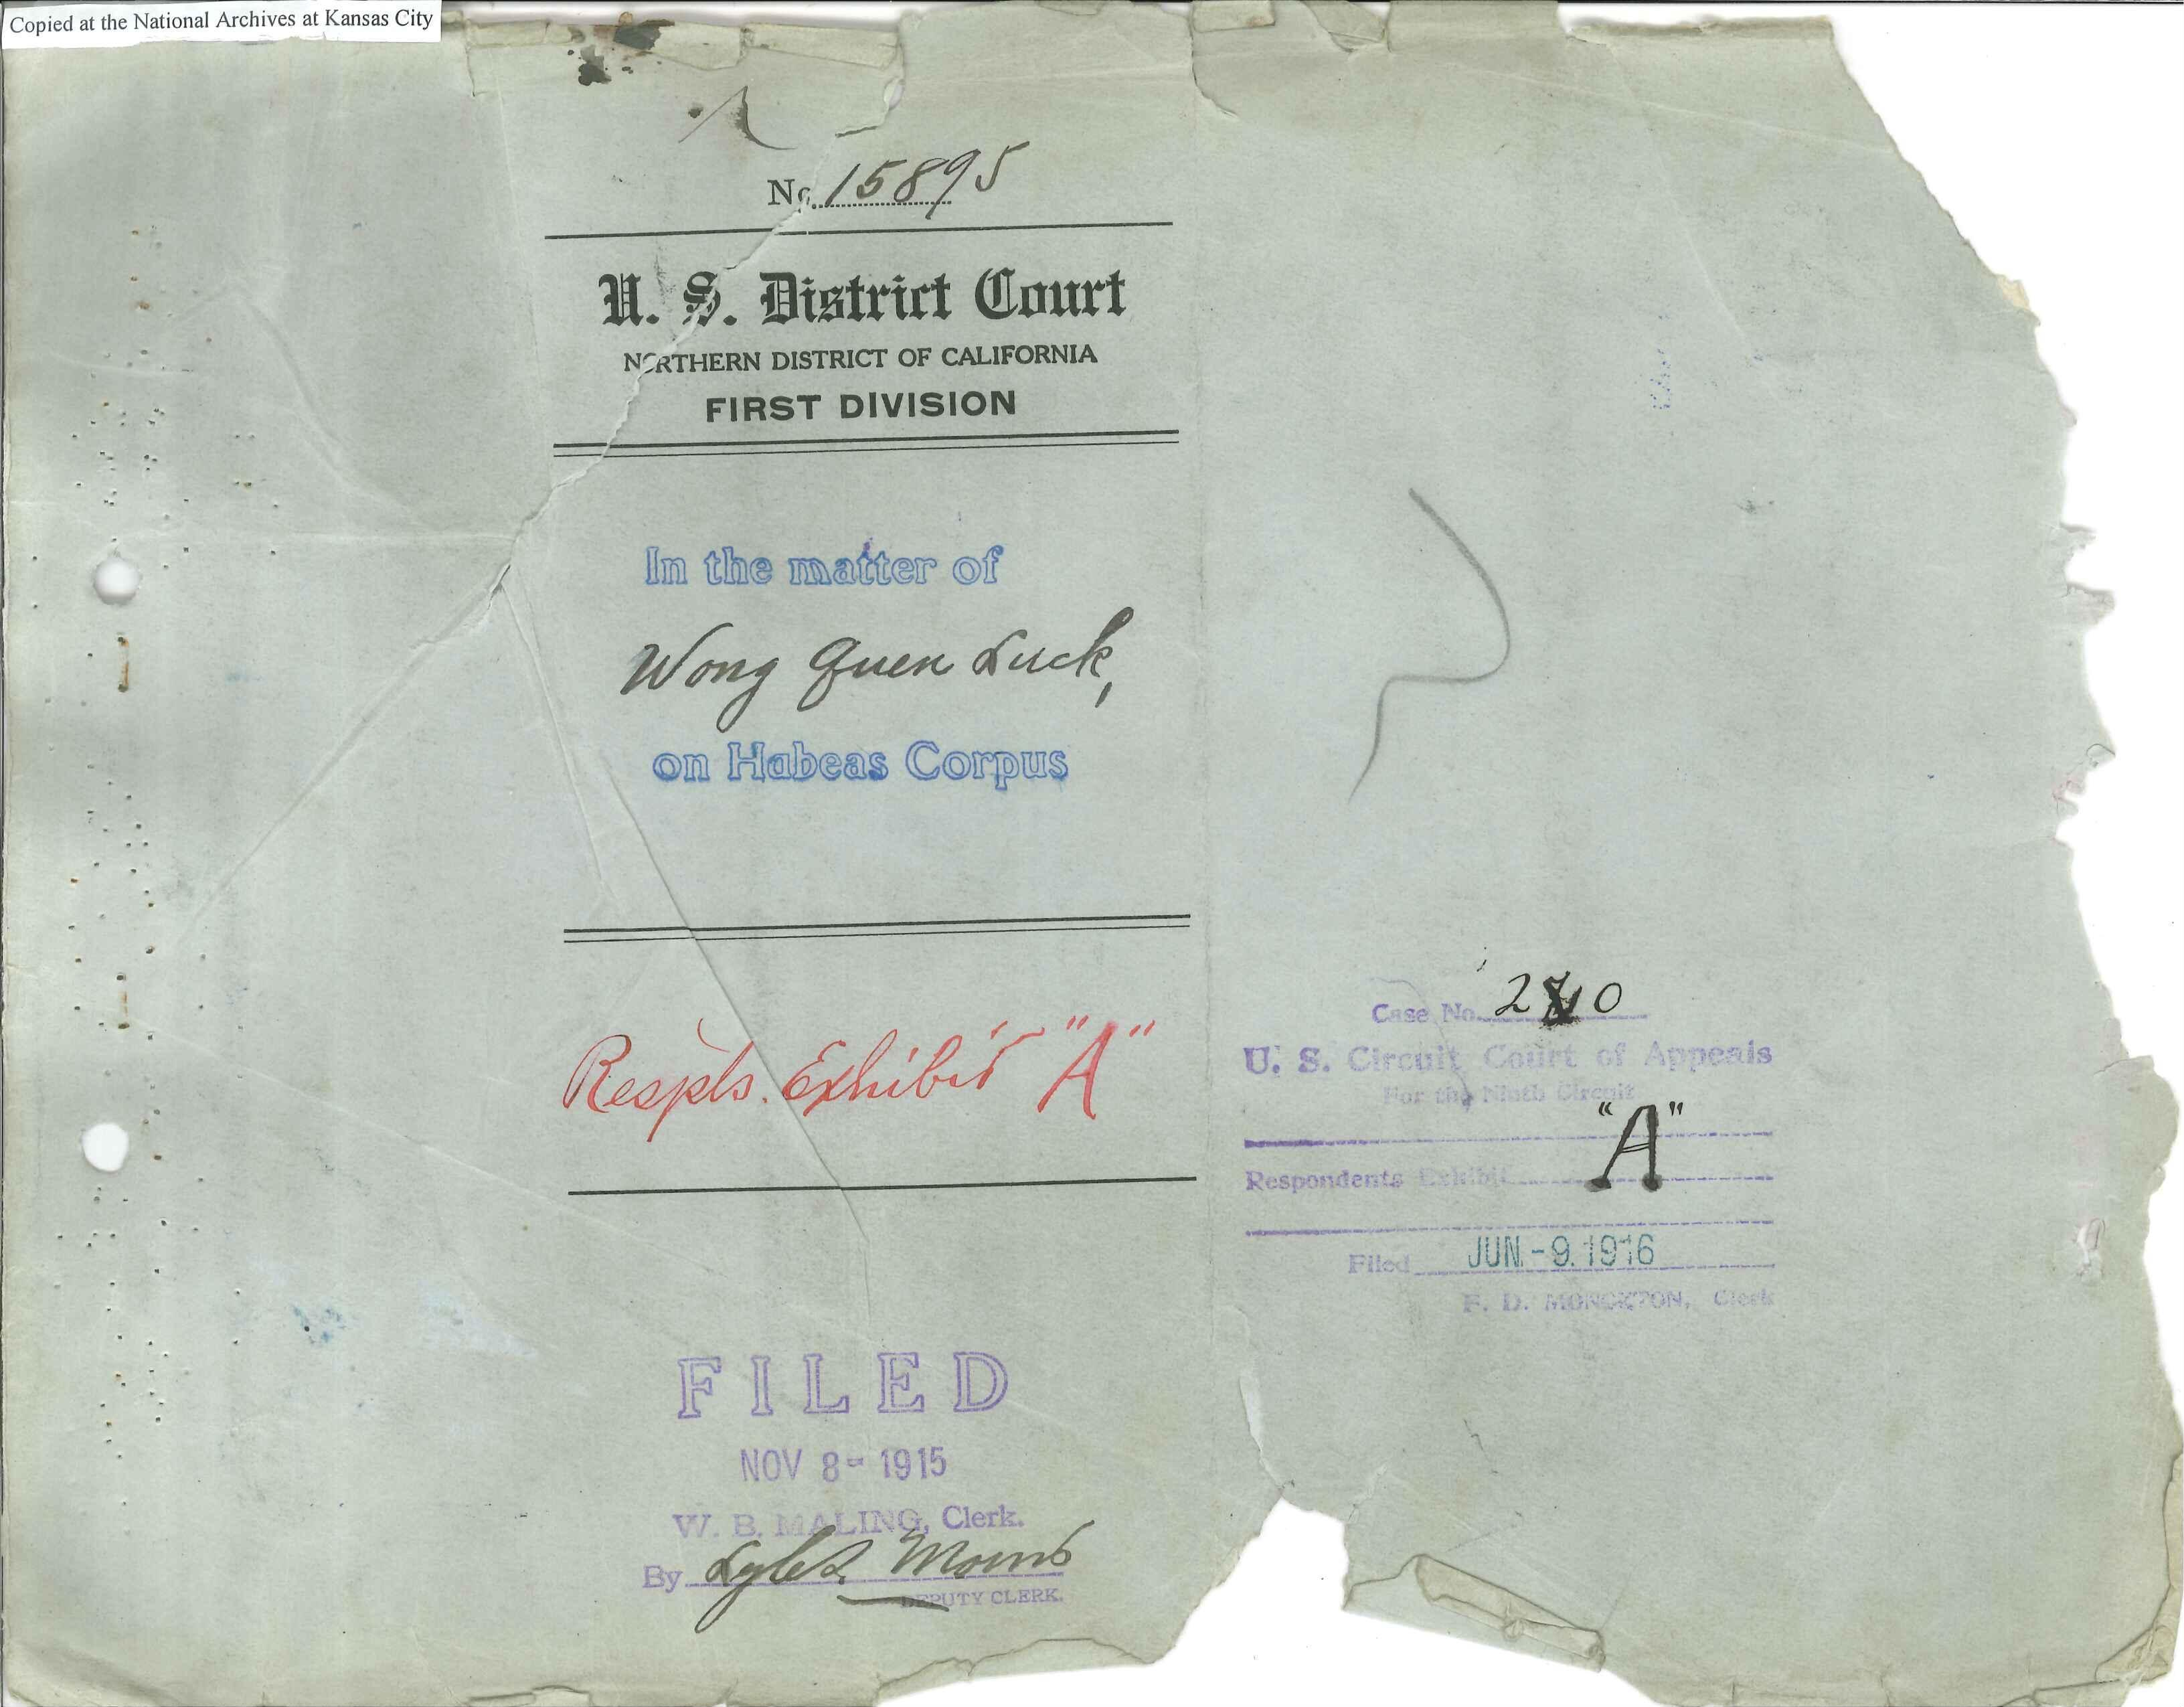 Copied at the National Archives at Kansas City
No. 15895
U. S. District Court
NORTHERN DISTRICT OF CALIFORNIA
FIRST DIVISION
In the matter of
Wong Quen Luck,
on Habeas Corpus
Respts. Exhibit "A"
FILED
NOV 8- 1915
W. B. MALING, Clerk.
By
DEPUTY CLERK.
Case No.
U. S. Circuit Court of Appeals
For the Ninth Circuit
"A"
Respondents Exhibit
Filed JUN -9. 1916
F. D. MONCKTON, Clerk